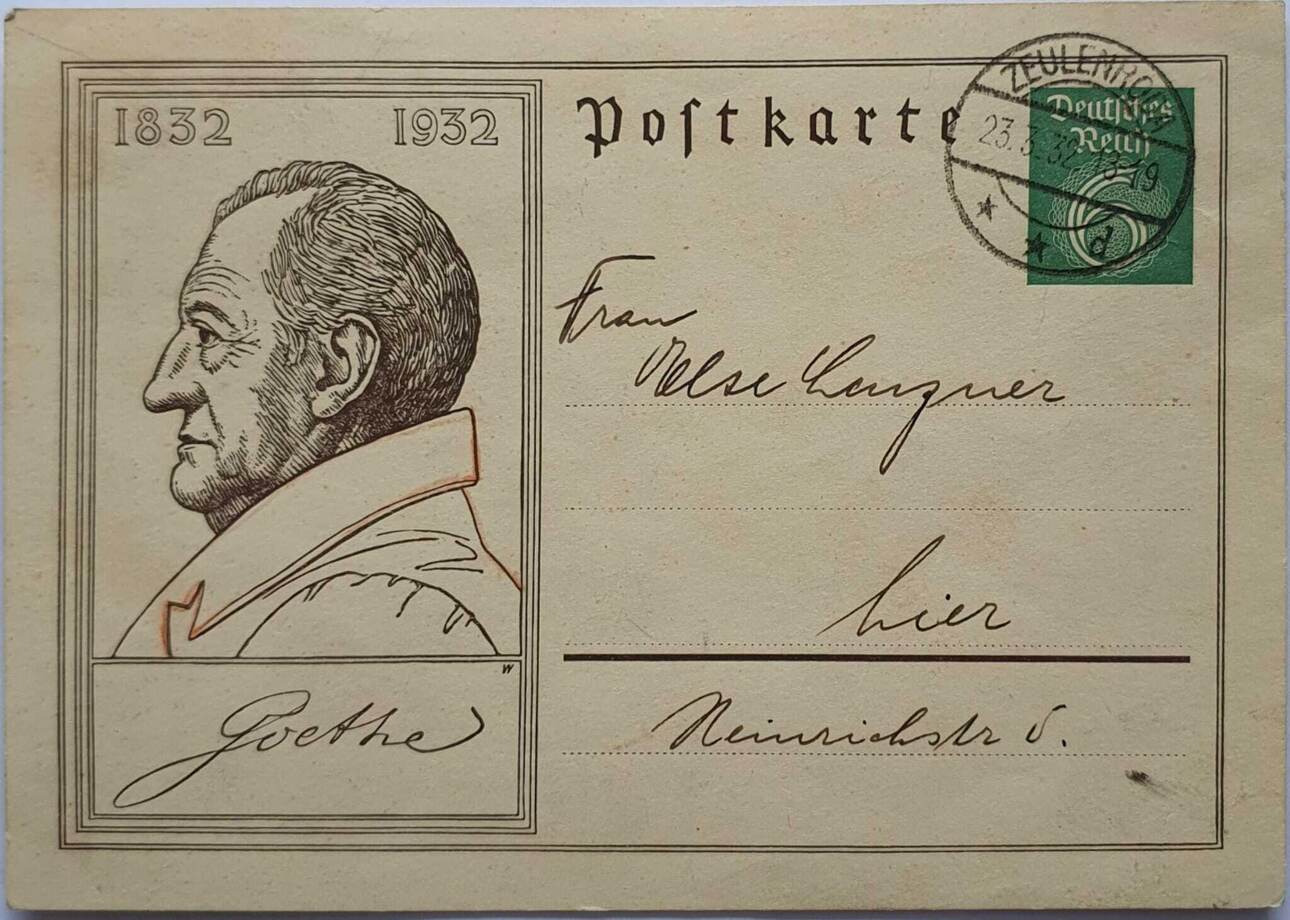 1832 1932
Postkarte
ZEULENRODA
23.3.32 18-19
d
Deutsches
Reich
6
Frau
Else
hier
Heinrichstr
W
Goethe